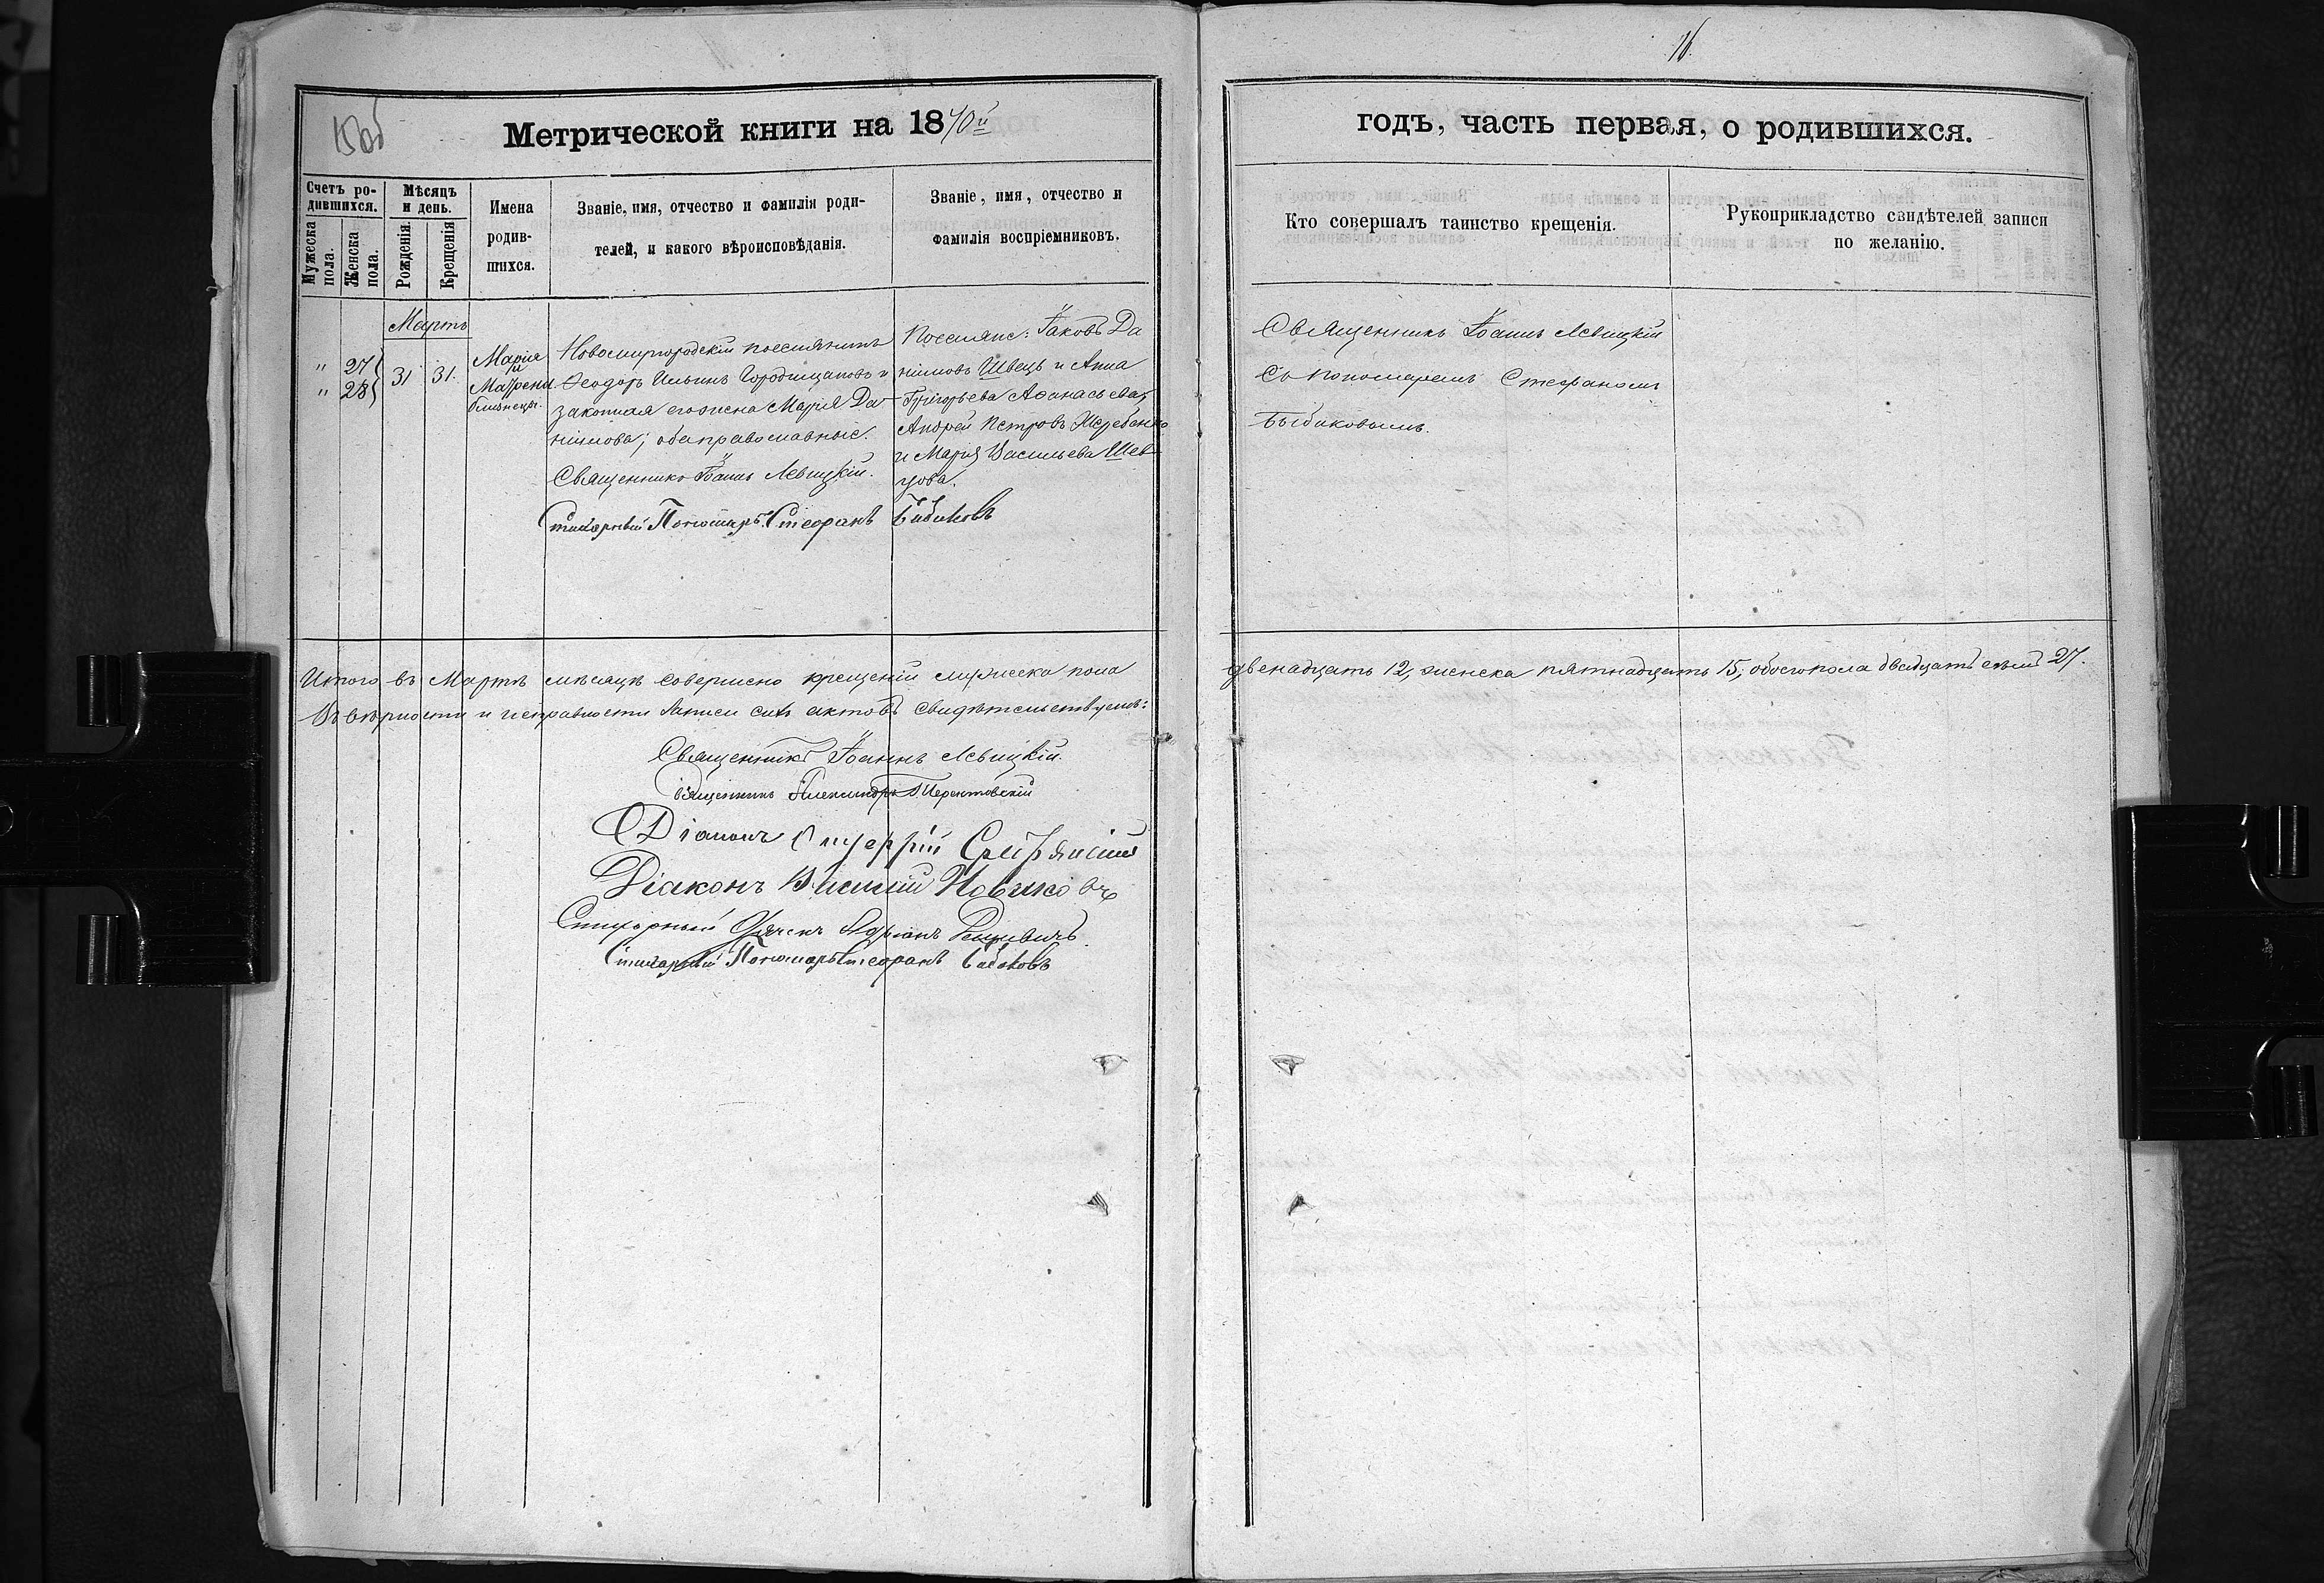 16.
15об
Метрической книги на 1870й
годъ, часть первая, о родившихся.
Счетъ родившихся.
Мужеска пола.
Женска пола.
Мѣсяцъ и день.
Рожденія
Крещенія
Имена родив-
шихся.
Званіе, имя, отчество и фамилія роди-
телей, и какого вѣроисповѣданія.
Званіе, имя, отчество и
фамилія воспріемниковъ.
Кто совершалъ таинство крещенія.
Рукоприкладство свидѣтелей записи
по желанію.
Мартъ
" 27
" 28
31 31.
Марія
и
Маѳрена
близнецы.
Новомиргородскій поселянинъ
Ѳеодоръ Ильинъ Городищановъ и
законная его жена Марія Да-
ніилова; оба православные.
Священникъ Іоаннъ Левицкій.
Стихарный Пономарь Стефанъ Бибиковъ
Поселяне: Іаковъ Да
ніиловъ Швецъ и Анна
Григорьева Аѳанасьева,
Андрей Петровъ Жеребенко
и Марія Васильева Шев-
цова.
Священникъ Іоаннъ Левицкій
съ пономаремъ Стефаномъ
Бибиковымъ.
Итого въ Мартѣ мѣсяцѣ совершено крещеній мужеска пола
двенадцать 12, женска пятнадцать 15, обоего пола двадцать семь 27.
Въ вѣрности и исправности записи сихъ актовъ свидѣтельствуемъ:
Священникъ Іоаннъ Левицкій.
Священникъ Александръ
Діаконъ
Діаконъ Василій Новиковъ
Стихарный Дьячекъ Адріанъ
Стихарный Пономарь Стефанъ Бибиковъ